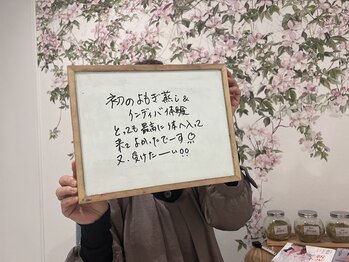 初のよもぎ蒸し&
インディバ体験
とっても最高に体へ入って
来てよかったでーす
又、受けたーい!!